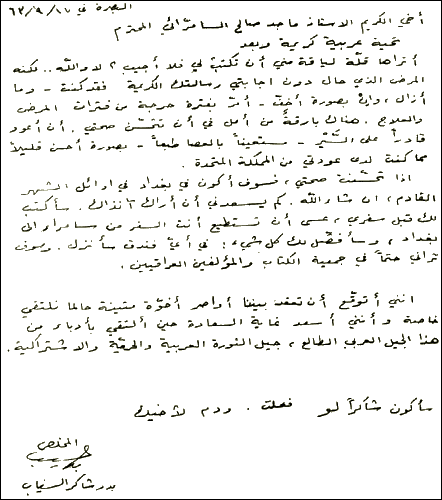 البصرة في ٦٣/٩/١٧
أخي الكريم الاستاذ ماجد صالح السامرائي المحترم
تحية عربية كريمة وبعد
أتراها قلّة لياقة مني أن تكتب لي فلا أجيب ؟ لا والله .. لكنه
المرض الذي حال دون اجابتي رسالتك الكريمة فقد كنت - وما
أزال ، وإن بصورة أخف - أمر بفترة حرجة من فترات المرض
والعلاج . هناك بارقة من أمل في أن تتحسن صحتي . أن أعود
قادراً على السير - مستعيناً بالعصا طبعاً - بصورة أحسن قليلاً
مما كنت لدى عودتي من المملكة المتحدة .
اذا تحسنت صحتي ، فسوف أكون في بغداد في اوائل الشهر
القادم ، ان شاء الله . كم يسعدني أن أراك آنذاك . سأكتب
لك قبل سفري ، عسى أن تستطيع أنت السفر من سامراء الى
بغداد ، وسأفصّل لك كل شيء : في أيّ فندق سأنزل . وسوف
تراني حتماً في جمعية الكتاب والمؤلفين العراقيين .
انني أتوقّع أن تعقد بيننا أواصر أخوّة متينة حالما نلتقي
خاصة وأنني أسعد غاية السعادة حين ألتقي بأدباء من
هذا الجيل العربي الطالع ، جيل الثورة العربية والحرية والاشتراكية .
سأكون شاكراً لو فعلت . ودم لأخيك
المخلص
بدر شاكر السياب